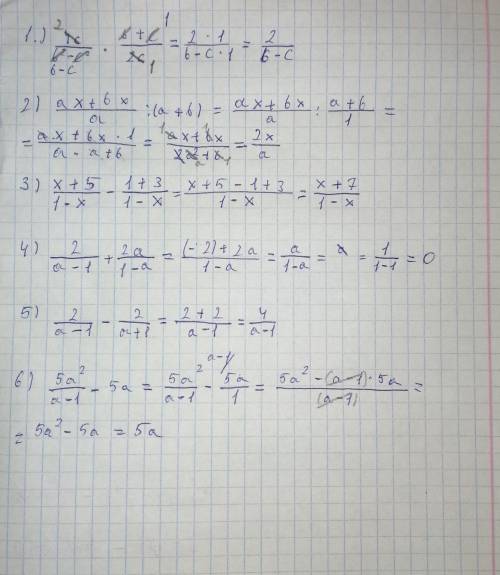 1.) · (b + c)/ = (2 · 1)/(b-c · 1) = 2/(b-c)
2) (ax + bx)/a : (a + b) = (ax + bx)/a : (a + b)/1 =
= (ax + bx · 1)/(a - a + b) = = 2x/a
3) (x + 5)/(1 - x) - (1 + 3)/(1 - x) = (x + 5 - 1 + 3)/(1 - x) = (x + 7)/(1 - x)
4) 2/(a - 1) + 2a/(1 - a) = ((-2) + 2a)/(1 - a) = a/(1-a) = = 1/(1-1) = 0
5) 2/(a - 1) - 2/(a + 1) = (2 + 2)/(a - 1) = 4/(a-1)
6) 5a²/(a - 1) - 5a = 5a²/(a - 1) - 5a/1 = (5a² - (a-1) · 5a)/(a-1) =
= 5a² - 5a = 5a